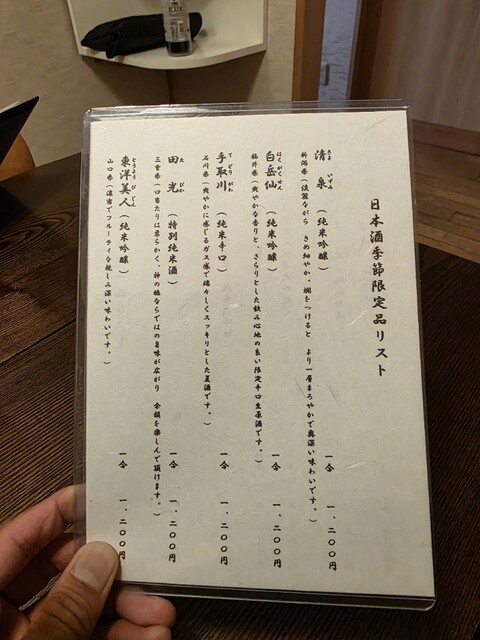 日本酒季節限定品リスト
清泉 (純米吟醸) 一合 一、二〇〇円
きよ いずみ
新潟県 (淡麗ながら きめ細やか。燗をつけると より一層まろやかで奥深い味わいです。)
白岳仙 (純米吟醸) 一合 一、二〇〇円
はくがくせん
福井県 (爽やかな香りと、さらりとした飲み心地の良い限定辛口生原酒です。)
手取川 (純米辛口) 一合 一、二〇〇円
てどりがわ
石川県 (爽やかに感じるガス感で瑞々しくスッキリとした夏酒です。)
田光 (特別純米酒) 一合 一、二〇〇円
た びか
三重県 (口当たりは柔らかく、神の穂ならではの旨味が広がり 余韻を楽しんで頂けます。)
東洋美人 (純米吟醸) 一合 一、二〇〇円
とうようびじん
山口県 (濃密でフルーティな親しみ深い味わいです。)